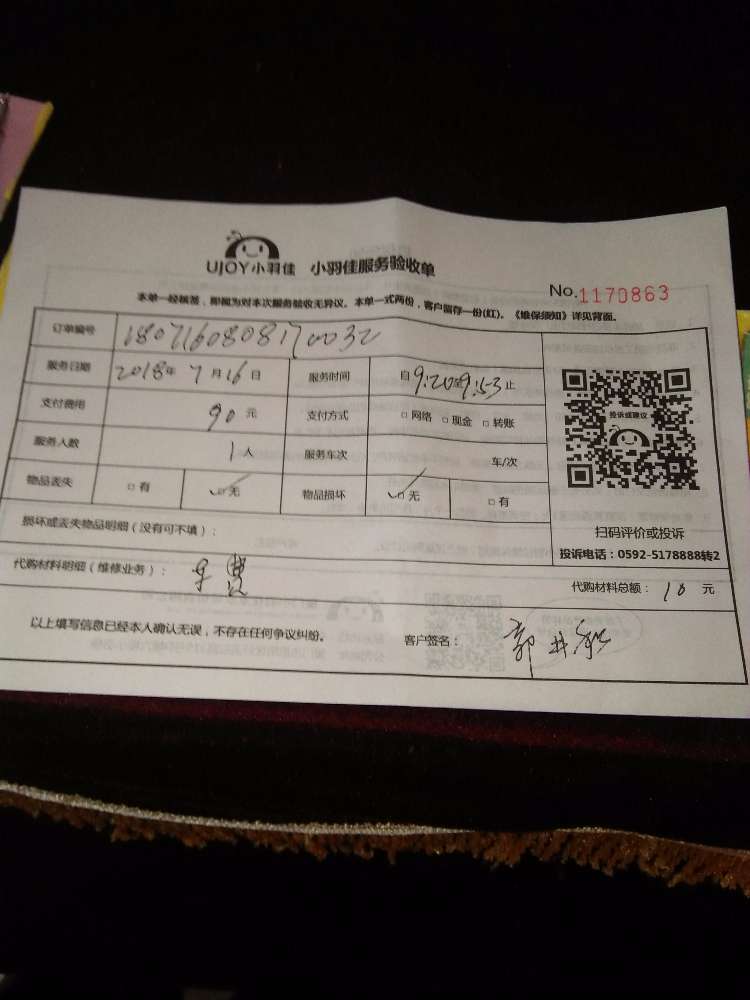 UJOY小羽佳 小羽佳服务验收单
No.1170863
本单一经核签，即视为对本次服务验收无异议。本单一式两份，客户留存一份(红)。《维保须知》详见背面。
订单编号 1807160808170032
服务日期 2018年 7月16日 服务时间 自9:20至9:53止
支付费用 90元 支付方式 □网络 □现金 □转账
服务人数 1人 服务车次 车/次
物品丢失 □有 ☑无 物品损坏 ☑无 □有
投诉或建议
扫码评价或投诉
投诉电话：0592-5178888转2
损坏或丢失物品明细（没有可不填）：
代购材料明细（维修业务）： 车费 代购材料总额：10元
以上填写信息已经本人确认无误，不存在任何争议纠纷。 客户签名：郭井